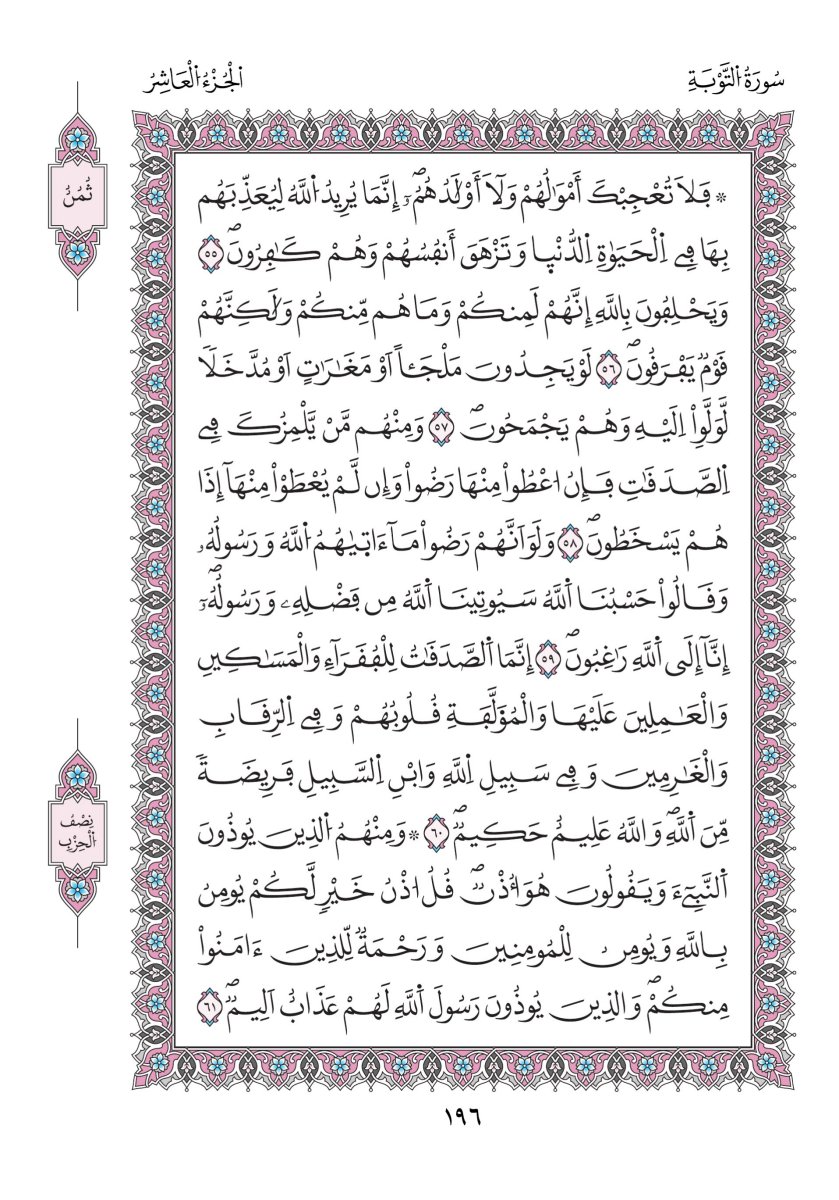 سُورَةُ اُ۬لتَّوْبَةِ
اُ۬لْجُزْءُ اُ۬لْعَاشِرُ
۞ فَلَا تُعْجِبْكَ أَمْوَٰلُهُمْ وَلَآ أَوْلَٰدُهُمُۥٓۖ إِنَّمَا يُرِيدُ اُ۬للَّهُ لِيُعَذِّبَهُم
بِهَا فِے اِ۬لْحَيَوٰةِ اِ۬لدُّنْي۪ا وَتَزْهَقَ أَنفُسُهُمْ وَهُمْ كَٰفِرُونَۖ ٥٥
وَيَحْلِفُونَ بِاللَّهِ إِنَّهُمْ لَمِنكُمْ وَمَا هُم مِّنكُمْ وَلَٰكِنَّهُمْ
قَوْمٌ يَفْرَقُونَۖ ٥٦ لَوْ يَجِدُونَ مَلْجَـًٔا اَوْ مَغَٰرَٰتٍ اَوْ مُدَّخَلًا
لَّوَلَّوِاْ اِلَيْهِ وَهُمْ يَجْمَحُونَۖ ٥٧ وَمِنْهُم مَّنْ يَّلْمِزُكَ فِے
اِ۬لصَّدَقَٰتِ فَإِنُ ا۟عْطُواْ مِنْهَا رَضُواْ وَإِن لَّمْ يُعْطَوْاْ مِنْهَآ إِذَا
هُمْ يَسْخَطُونَۖ ٥٨ وَلَوَ اَنَّهُمْ رَضُواْ مَآ ءَات۪يٰهُمُ اُ۬للَّهُ وَرَسُولُهُۥ
وَقَالُواْ حَسْبُنَا اَ۬للَّهُ سَيُوتِينَا اَ۬للَّهُ مِن فَضْلِهِۦ وَرَسُولُهُۥٓۖ
إِنَّآ إِلَى اَ۬للَّهِ رَٰغِبُونَۖ ٥٩ إِنَّمَا اَ۬لصَّدَقَٰتُ لِلْفُقَرَآءِ وَالْمَسَٰكِينِ
وَالْعَٰمِلِينَ عَلَيْهَا وَالْمُؤَلَّفَةِ قُلُوبُهُمْ وَفِے اِ۬لرِّقَابِ
وَالْغَٰرِمِينَ وَفِے سَبِيلِ اِ۬للَّهِ وَابْنِ اِ۬لسَّبِيلِ فَرِيضَةً
مِّنَ اَ۬للَّهِۖ وَاللَّهُ عَلِيمٌ حَكِيمٌۖ ٦٠ ۞ وَمِنْهُمُ اُ۬لذِينَ يُوذُونَ
اَ۬لنَّبِيٓءَ وَيَقُولُونَ هُوَ أُذْنٌۖ قُلُ ا۟ذْنُ خَيْرٍ لَّكُمْ يُومِنُ
بِاللَّهِ وَيُومِنُ لِلْمُومِنِينَ وَرَحْمَةٌ لِّلذِينَ ءَامَنُواْ
مِنكُمْۖ وَالذِينَ يُوذُونَ رَسُولَ اَ۬للَّهِ لَهُمْ عَذَابٌ اَلِيمٌۖ ٦١
ثُمُنُ
نِصْفُ
اُ۬لْحِزْبِ
١٩٦